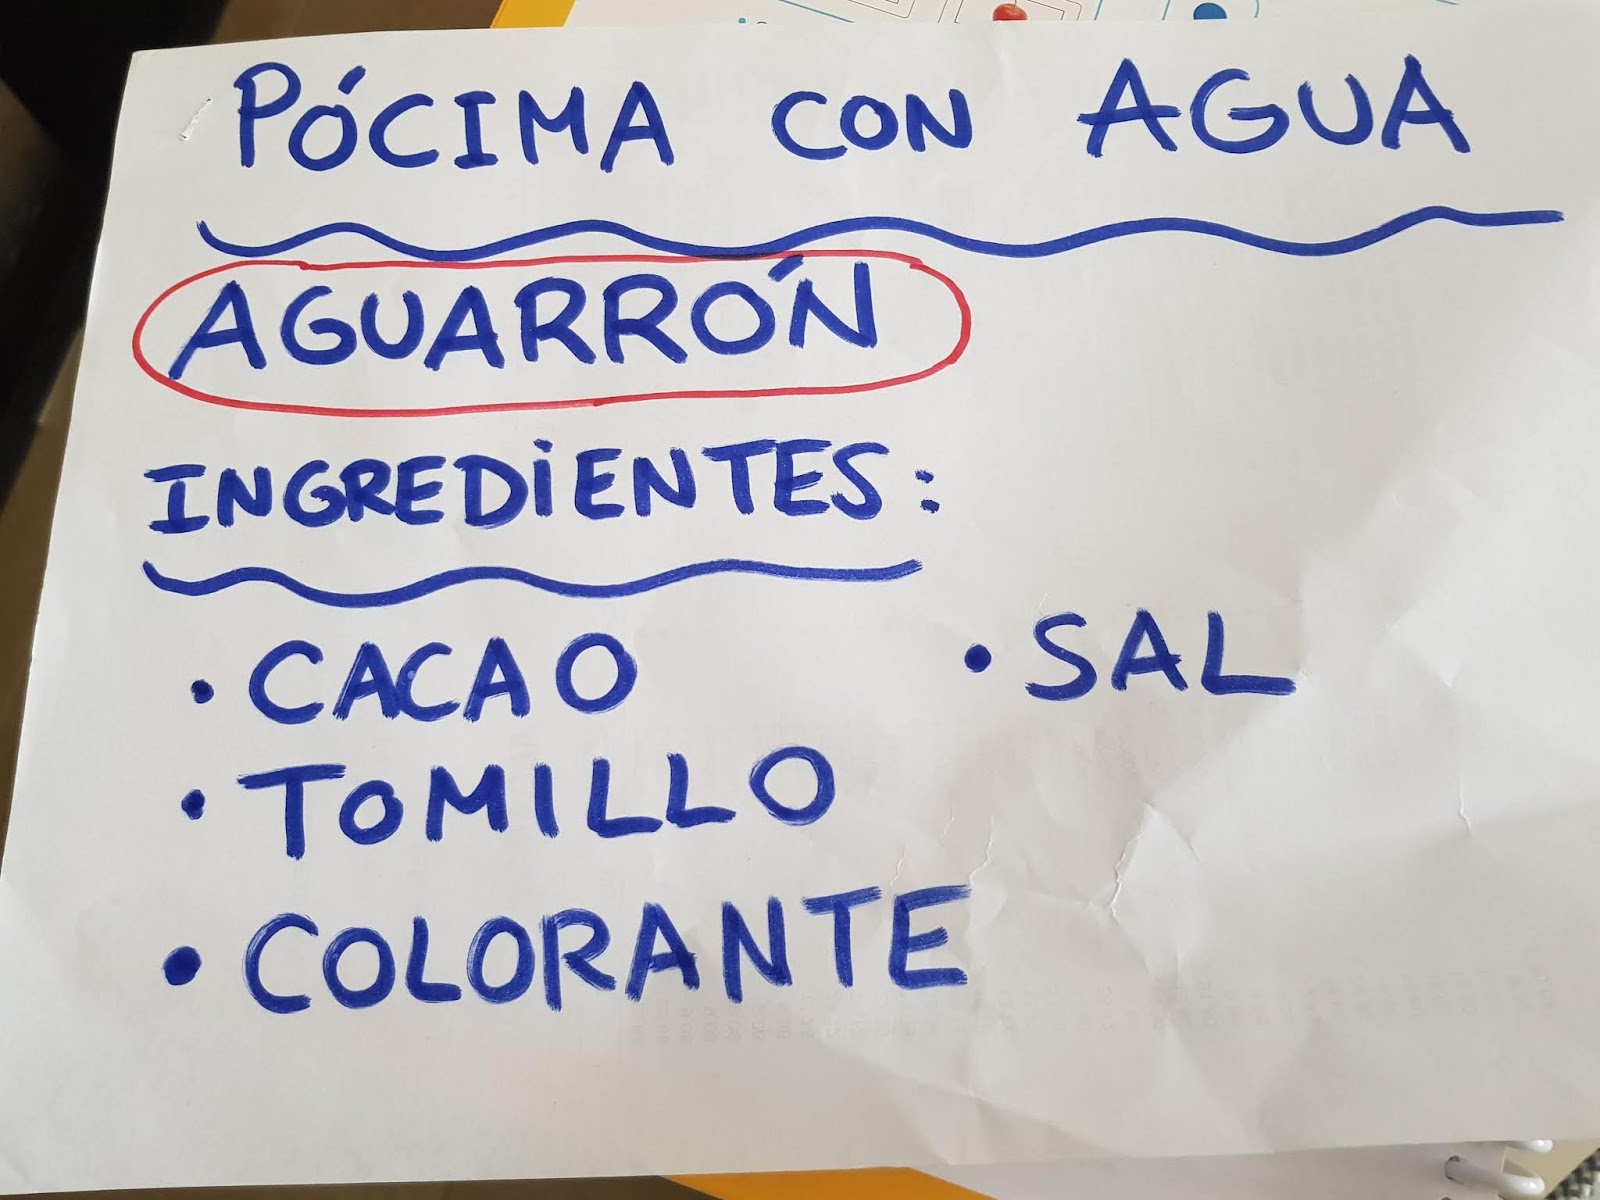 PÓCIMA CON AGUA
AGUARRÓN
INGREDIENTES:
• CACAO
• SAL
• TOMILLO
• COLORANTE